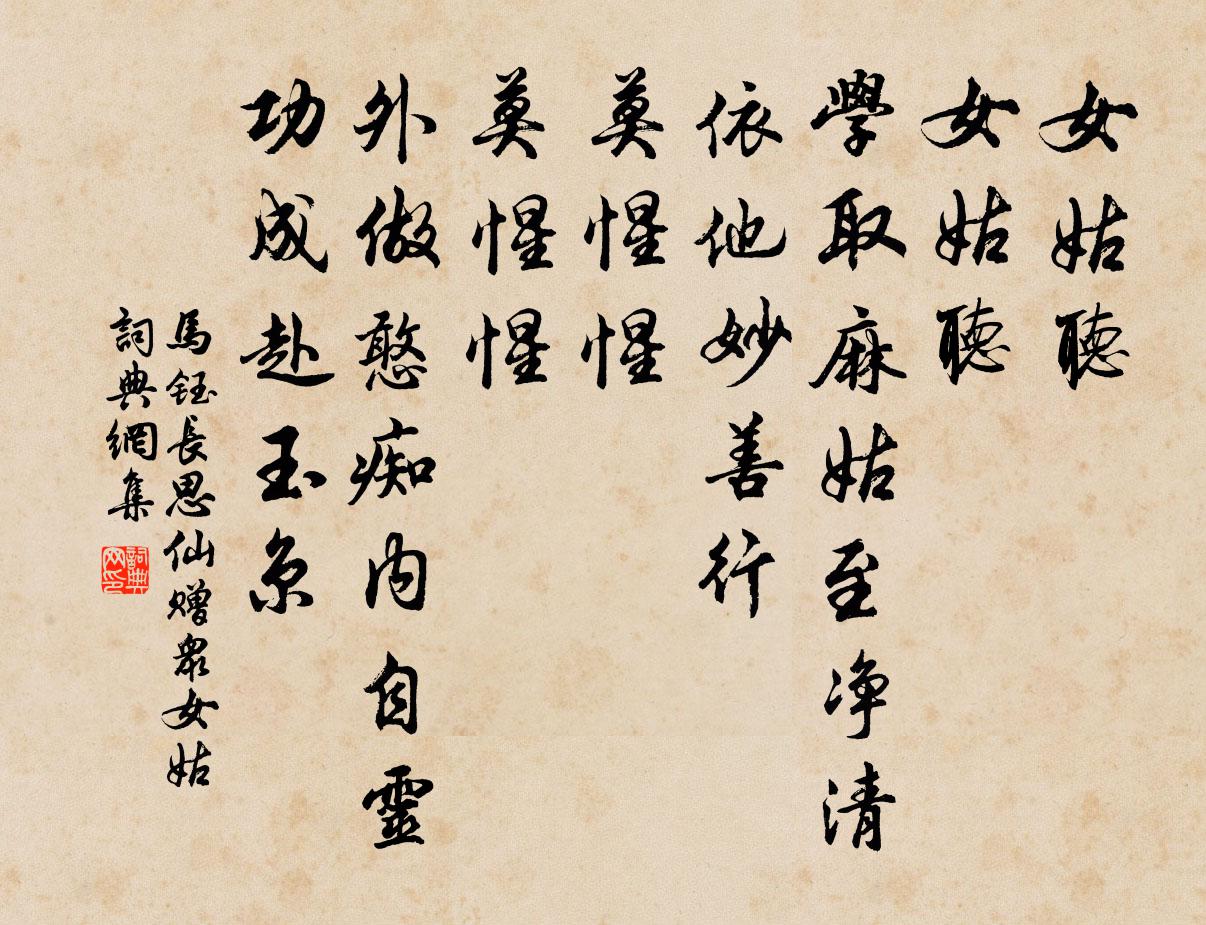 女姑聽
女姑聽
學取麻姑至净清
依他妙善行
莫惺惺
莫惺惺
外做憨痴内自靈
功成赴玉京
馬鈺長思仙赠衆女姑
詞典網集
詞典
网印